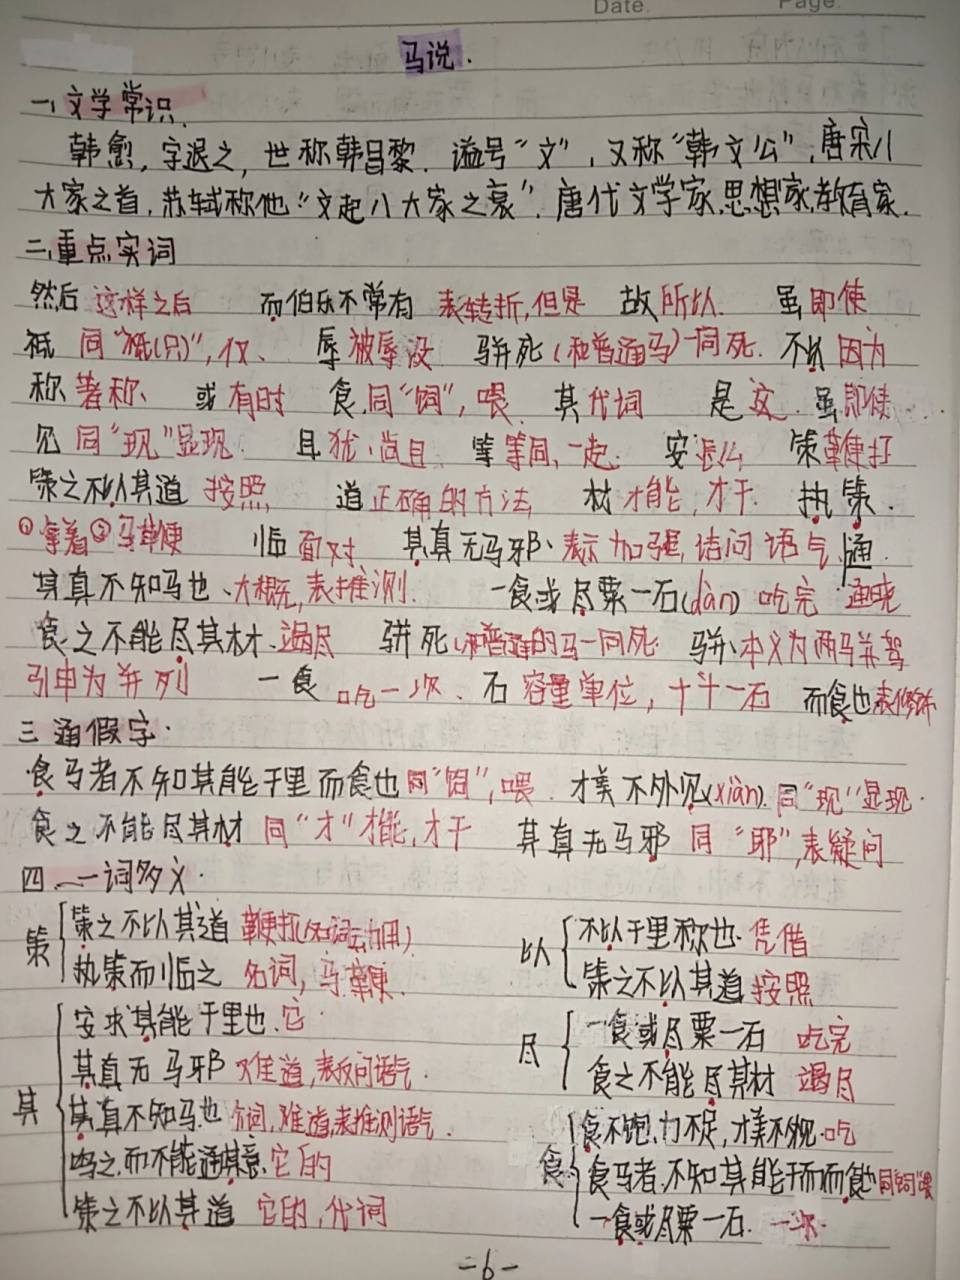 Date. Page.
马说.
一、文学常识.
韩愈,字退之,世称韩昌黎.谥号“文”,又称“韩文公”,唐宋八
大家之首,苏轼称他“文起八大家之衰”.唐代文学家,思想家,教育家.
二、重点实词
然后 这样之后 而伯乐不常有 表转折,但是 故 所以 虽 即使
祗 同“祇(只)”,仅、 辱 被辱没 骈死 (和普通马)一同死. 不以 因为
称 著称、 或 有时 食,同“饲”,喂 其 代词 是 这. 虽 即使.
见 同“现”显现. 且 犹,尚且 等 等同,一起. 安 怎么 策 鞭打
策之不以其道 按照, 道 正确的方法, 材 才能,才干. 执策.
①拿着②马鞭 临 面对、 其真无马邪、表示加强,诘问语气 通.
其真不知马也、大概,表推测. 一食或尽粟一石(dàn) 吃完 通晓
食之不能尽其材.竭尽 骈死,和普通的马一同死. 骈、本义为两马并驾
引申为并列 一食 吃一次、石 容量单位,十斗一石 而食也表修饰
三.通假字.
食马者不知其能千里而食也 同“饲”,喂. 才美不外见(xiàn).同“现”显现.
食之不能尽其材 同“才”才能,才干 其真无马邪 同“耶”,表疑问
四、一词多义.
策 策之不以其道 鞭打(名词动用)
执策而临之 名词,马鞭.
以 不以千里称也.凭借
策之不以其道 按照
其 安求其能千里也.它
其真无马邪 难道,表反问语气.
其真不知马也 难道,表推测语气.
鸣之而不能通其意.它的
策之不以其道 它的,代词
尽 一食或尽粟一石 吃完
食之不能尽其材 竭尽
食 食不饱,力不足,才美不外见.吃
食马者,不知其能千而而食也 同“饲”喂
一食或尽粟一石. 一次.
-6-